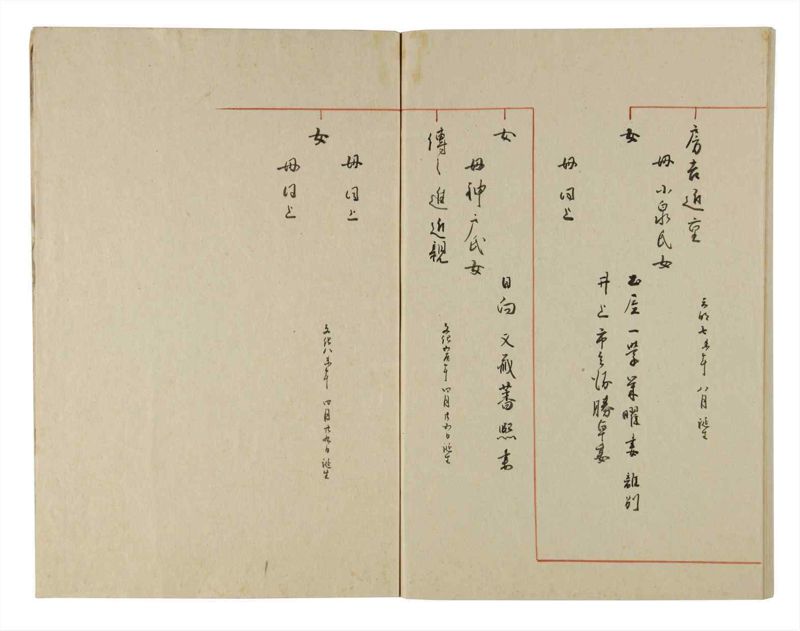 房吉近重
母小泉氏女
七年八月誕生
女
一学兼曜妻 離別
井上市之 勝卓妻
母同上
女
日向文蔵 煕妻
母神戸氏女
傳之進近親
文化 年四月廿 日誕生
母同上
女
文化八 年四月廿九日誕生
母同上